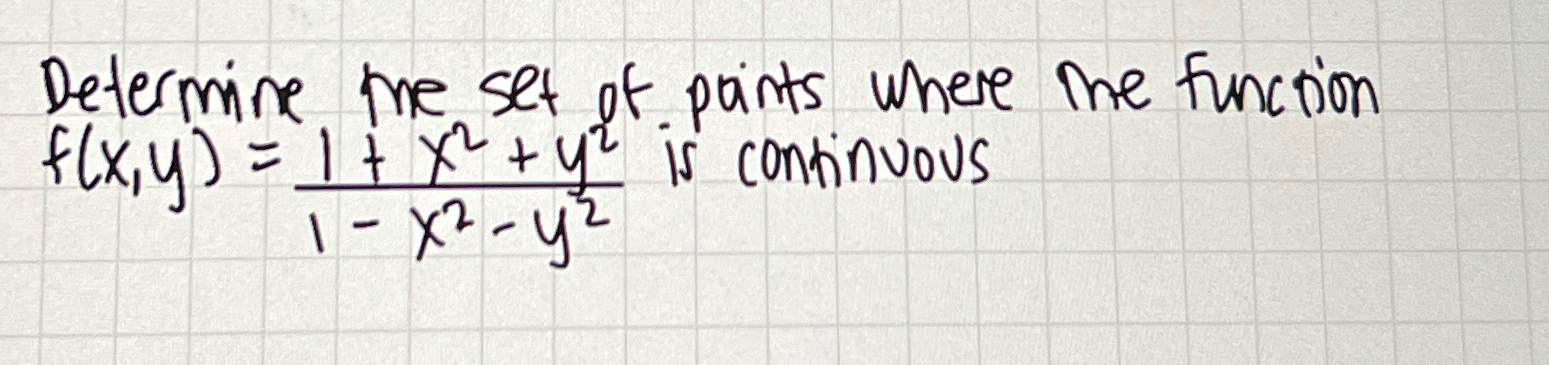 Determine the set of points where the function
f(x,y) = 1 + x² + y² / 1 - x² - y² is continuous